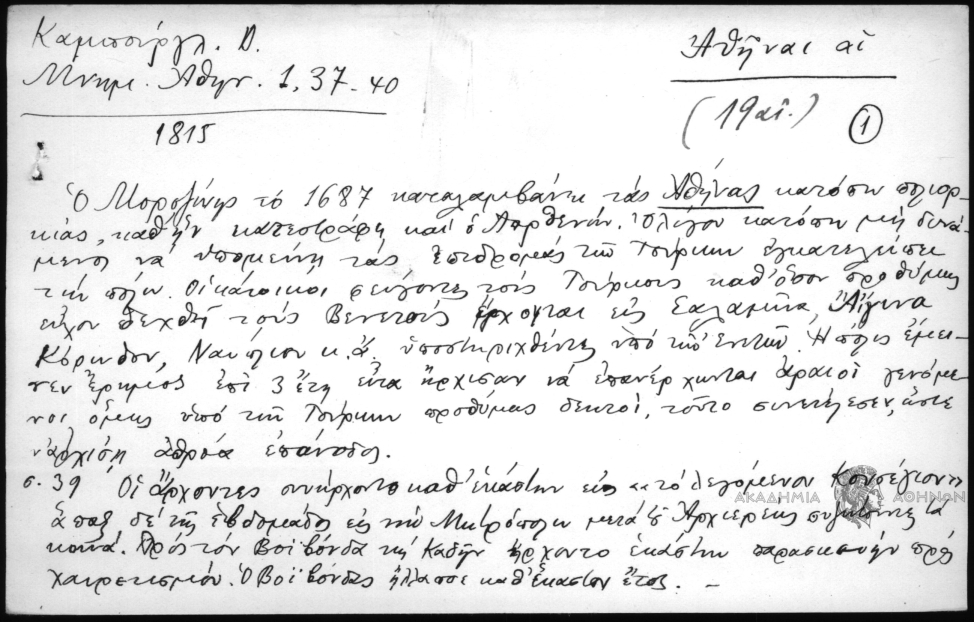 Καμπούργλ. Δ.
Μνημ. Αθην. 1, 37-40
1815
Ἀθῆναι αἱ
(19 αἰ.)
1
Ὁ Μοροζίνης τό 1687 καταλαμβάνει τάς Ἀθήνας κατόπιν πολιορ-
κίας, καθ' ἥν κατεστράφη καί ὁ Παρθενών. Ὀλίγον κατόπιν μή δυνά-
μενος νά ὑπομείνῃ τάς ἐπιδρομάς τῶν Τούρκων ἐγκατέλειπε
τήν πόλιν. Οἱ κάτοικοι φεύγοντες τούς Τούρκους καθ' ὅσον προθύμως
εἶχον δεχθῆ τούς Βενετούς ἔρχονται εἰς Σαλαμῖνα, Αἴγινα
Κόρινθον, Ναύπλιον κ.ἄ. ὑποστηριχθέντες ὑπό τῶν Ἑνετῶν. Ἡ πόλις ἔμει-
νεν ἔρημος ἐπί 3 ἔτη εἶτα ἤρχισαν νά ἐπανέρχωνται ἀραιοί γενόμε-
νοι ὅμως ὑπό τῶν Τούρκων προθύμως δεκτοί, τοῦτο συνετέλεσεν, ὥστε
ν' ἀρχίσῃ ἀθρόα ἐπάνοδος.
σ. 39 Οἱ ἄρχοντες συνήρχοντο καθ' ἑκάστην εἰς "τό λεγόμενον Κονσέγιον"
ἅπαξ δέ τῆς ἑβδομάδος εἰς τήν Μητρόπολιν μετά τοῦ Ἀρχιερέως συζητοῦντες τά
κοινά. Πρός τόν Βοϊβόνδα τήν Καδῆν ἤρχοντο ἑκάστην παρασκευήν πρός
χαιρετισμόν. Ὁ Βοϊβόνδας ἤλλασσε καθ' ἕκαστον ἔτος. –
ΑΚΑΔΗΜΙΑ ΑΘΗΝΩΝ